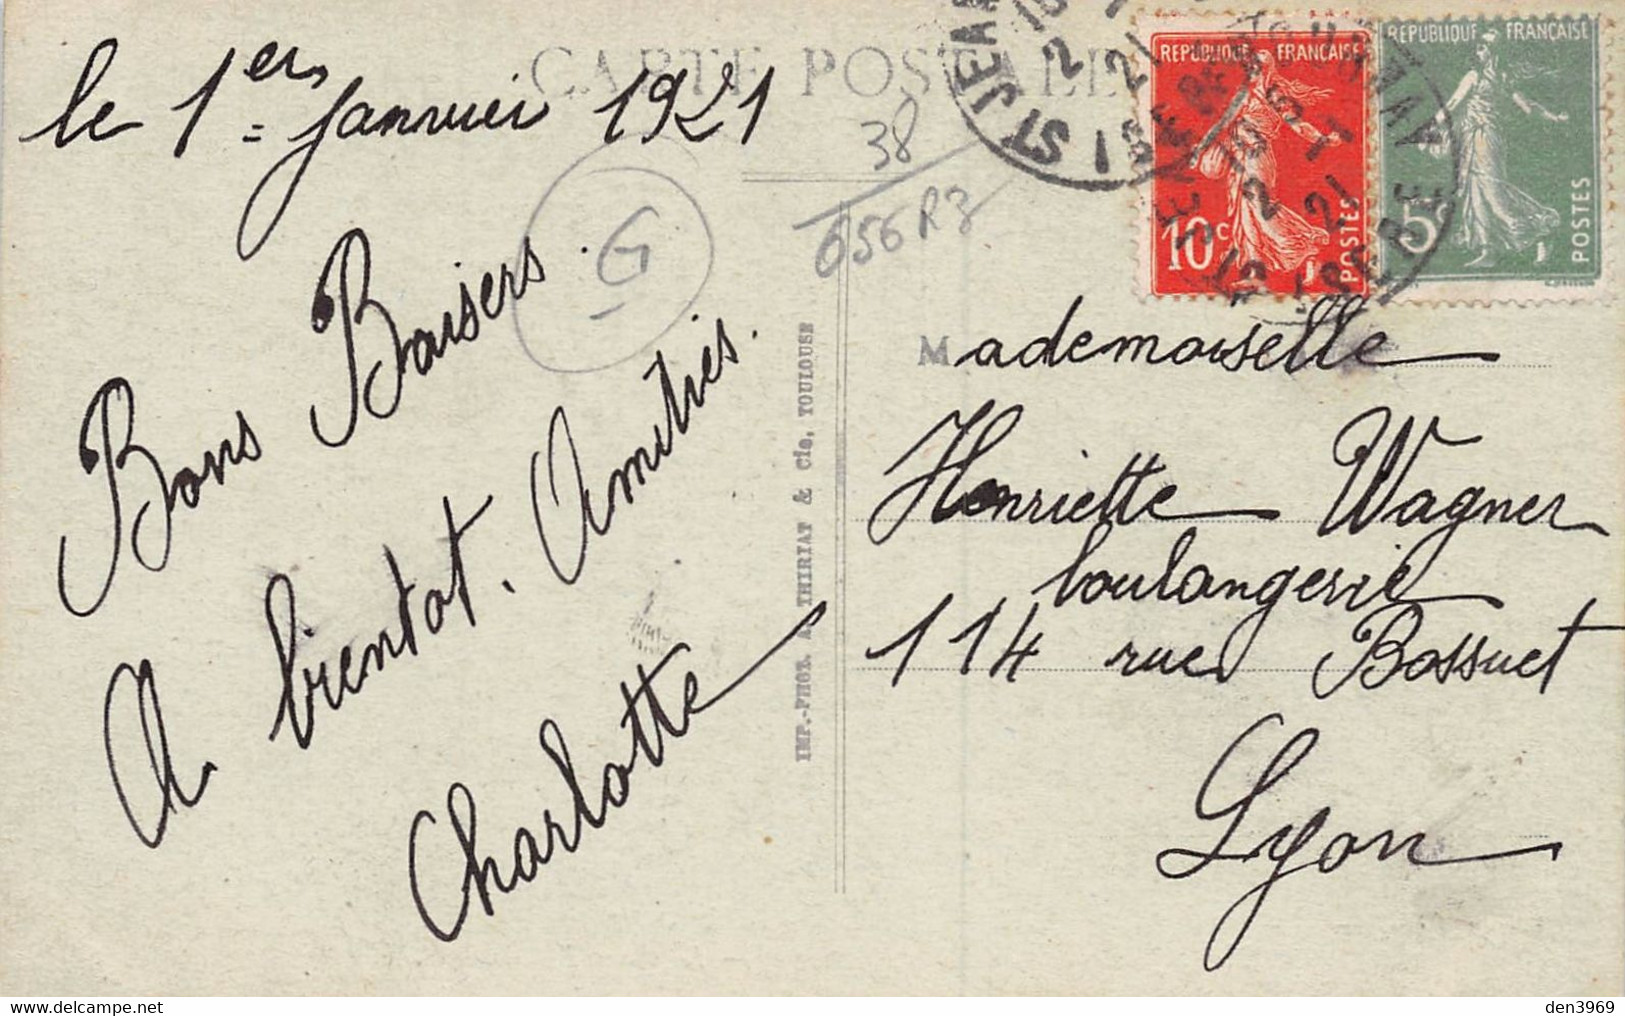 CARTE POSTALE
le 1er Janvier 1921
Bons Baisers.
A bientot. Amitiés.
Charlotte
38
656 R3
G
IMP.-PHOT. A. THIRIAT & Cie, TOULOUSE
REPUBLIQUE FRANÇAISE
10c
POSTES
REPUBLIQUE FRANÇAISE
5c
POSTES
ST JEAN
ISERE
10
2 1
21
Mademoiselle
Henriette Wagner
boulangerie
114 rue Bossuet
Lyon
den3969